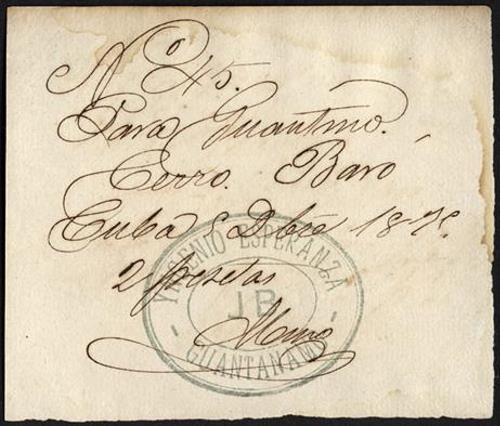 Nº 45.
Para Guantmo.
Cerro. Baró
Cuba 8 Dbre 187
2 pesetas
YNGENIO ESPERANZA
JB
- GUANTANAMO -